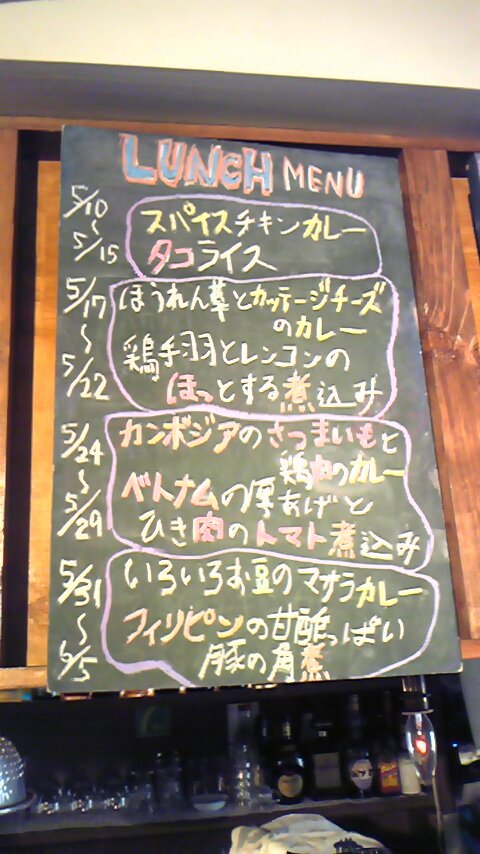 LUNCH MENU
5/10
~
5/15
スパイスチキンカレー
タコライス
5/17
~
5/22
ほうれん草とカッテージチーズ
のカレー
鶏手羽とレンコンの
ほっとする煮込み
5/24
~
5/29
カンボジアのさつまいもと
鶏肉のカレー
ベトナムの厚あげと
ひき肉のトマト煮込み
5/31
~
6/5
いろいろお豆のマサラカレー
フィリピンの甘酸っぱい
豚の角煮